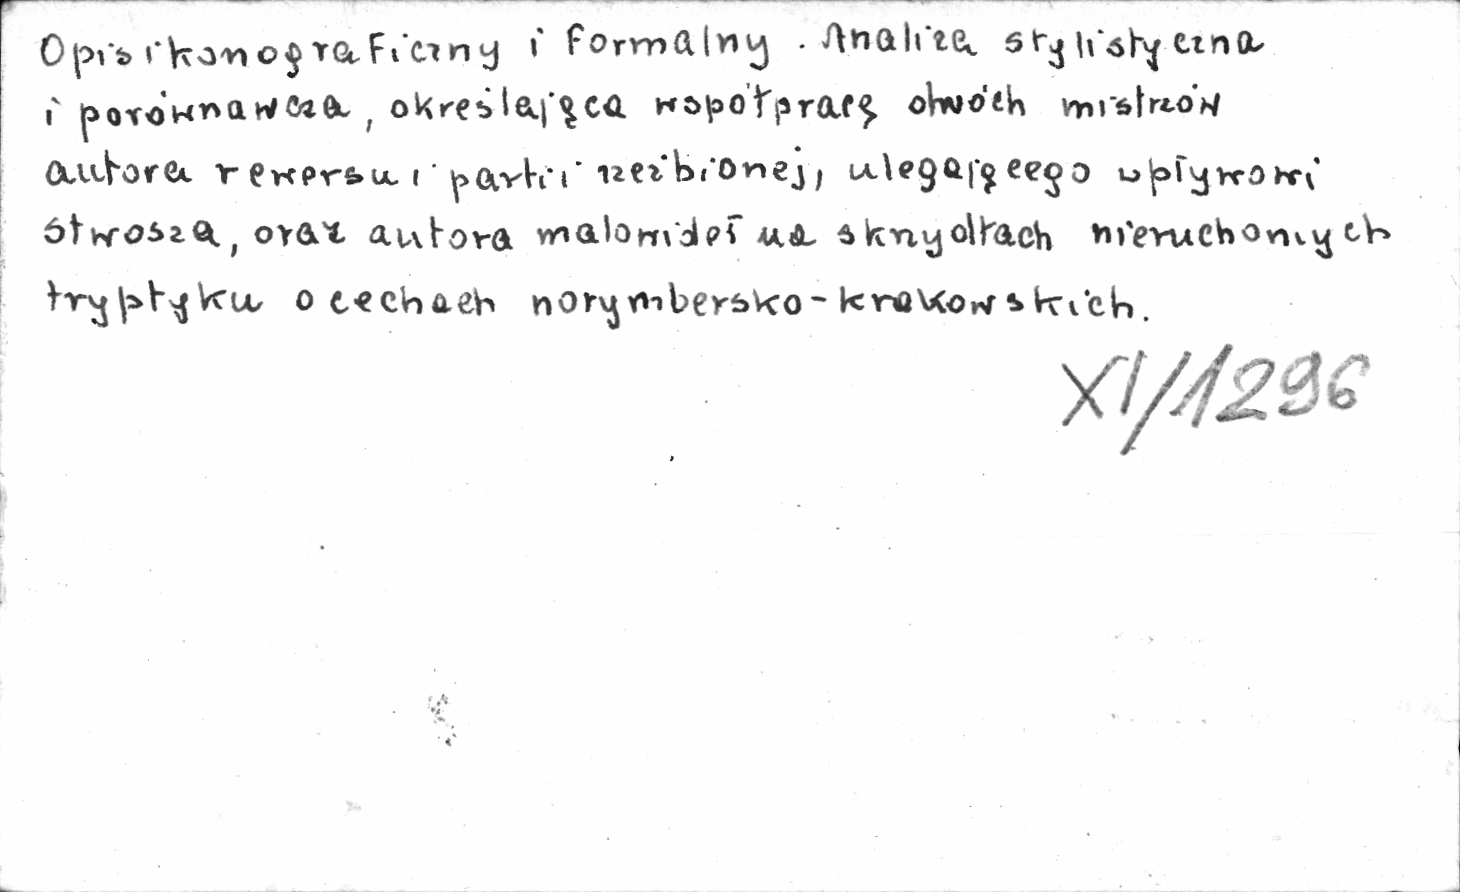 Opis ikonograficzny i formalny. Analiza stylistyczna
i porównawcza, określająca współpracę dwóch mistrzów
autora rewersu i partii rzeźbionej, ulegającego wpływowi
Stwosza, oraz autora malowideł na skrzydłach nieruchomych
tryptyku o cechach norymbersko-krakowskich.
XI/1296